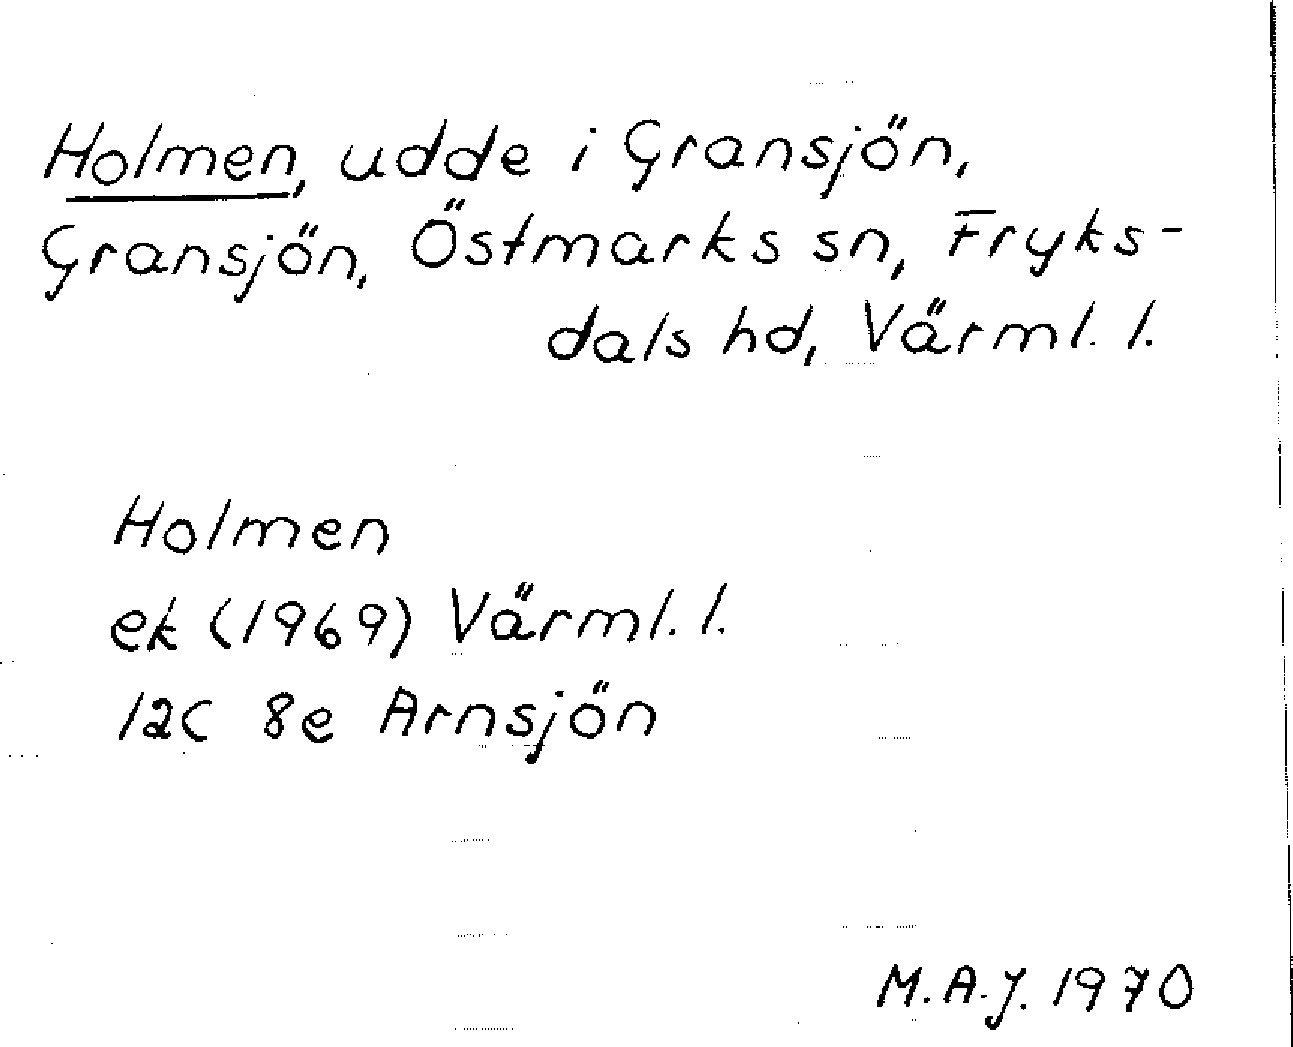 Holmen, udde i Gransjön,
Gransjön, Östmarks sn, Fryks-
dals hd, Värml. l.
Holmen
ek (1969) Värml. l.
12C 8e Arnsjön
M.A.J. 1970